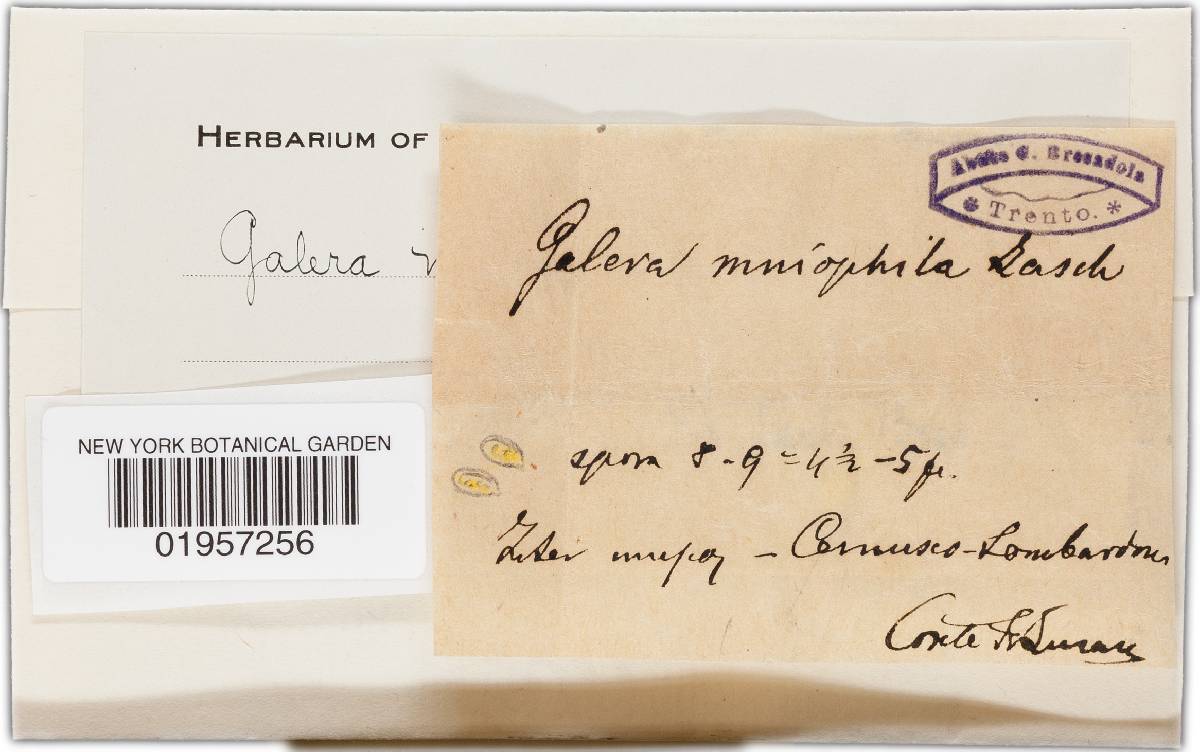 HERBARIUM OF
Galera
Abate G. Bresadola
* Trento. *
Galera mniophila Lasch
spora 8-9 = 4½-5 µ.
Inter muscos - Cernusco-Lombardone
Conte
NEW YORK BOTANICAL GARDEN
01957256